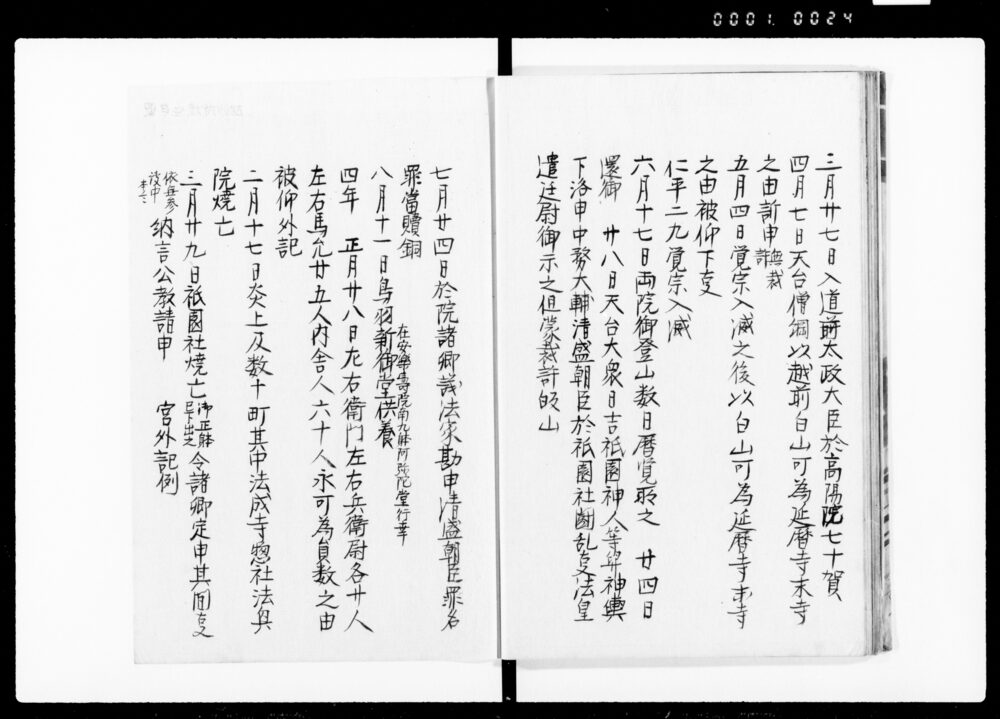 0001 0024
三月廿七日入道前太政大臣於高陽院七十賀
四月七日天台僧綱以越前白山可為延暦寺末寺
之由訴申無裁許
五月四日覚宗入滅之後以白山可為延暦寺末寺
之由被仰下事
仁平二九覚宗入滅
六月十七日両院御登山数日暦覧取之 廿四日
還御 廿八日天台大衆日吉祇園神人等舁神輿
下洛申中務大輔清盛朝臣於祇園社闘乱事法皇
遣廷尉御示之但蒙裁許帰山
七月廿四日於院諸卿議法家勘申清盛朝臣罪名
罪當贖銅
八月十一日鳥羽新御堂供養在安樂壽院南九躰阿弥陀堂行幸
四年 正月廿八日左右衛門左右兵衛尉各廿人
左右馬允廿五人内舎人六十人永可為員数之由
被仰外記
二月十七日炎上及数十町其中法成寺惣社法興
院焼亡
三月廿九日祇園社焼亡御正躰已下出之令諸卿定申其間事
納言公教請申 宮外記例